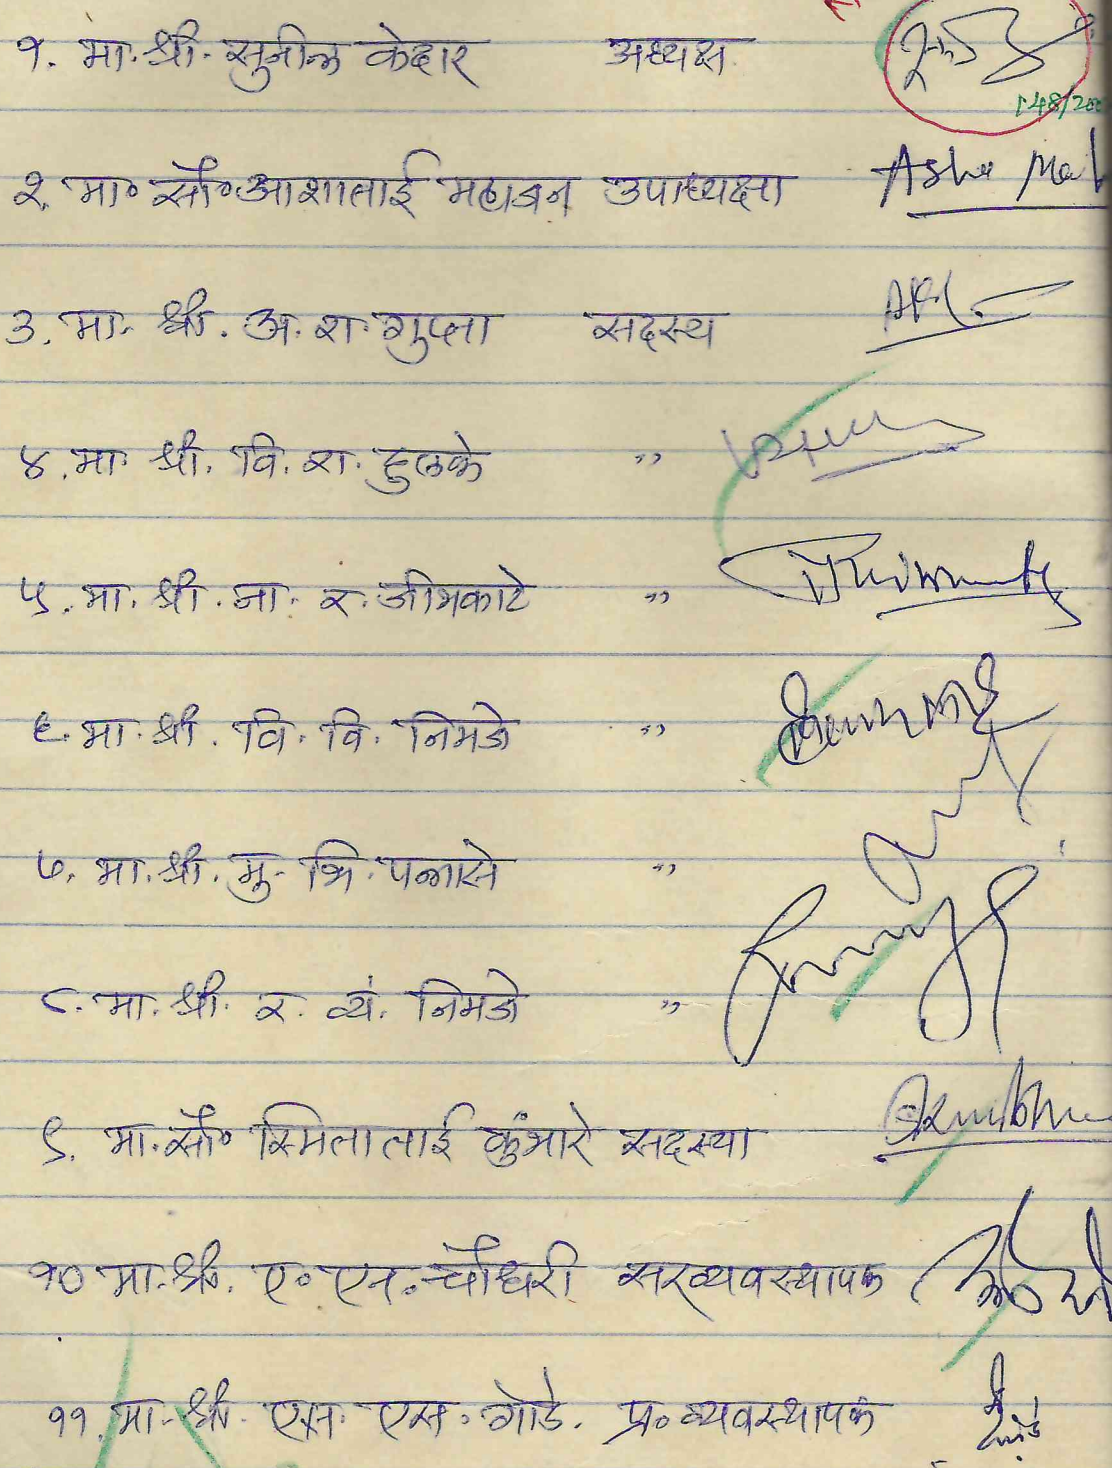 १. मा. श्री. सुनील केदार अध्यक्ष
148/200
२. मा० सौ० आशाताई महाजन उपाध्यक्षा Asha
३. मा. श्री. अ. रा. गुप्ता सदस्य
४. मा. श्री. वि. रा. हुलके ,,
५. मा. श्री. ना. र. जीभकाटे ,,
६. मा. श्री. वि. वि. निमजे ,,
७. मा. श्री. मु. भि. पळसे ,,
८. मा. श्री. र. व्यं. निमजे ,,
९. मा. सौ० स्मिताताई कुंभारे सदस्या
१० मा. श्री. ए० एन. चौधरी सरव्यवस्थापक
११. मा. श्री. एन. एस. गोडे. प्र० व्यवस्थापक